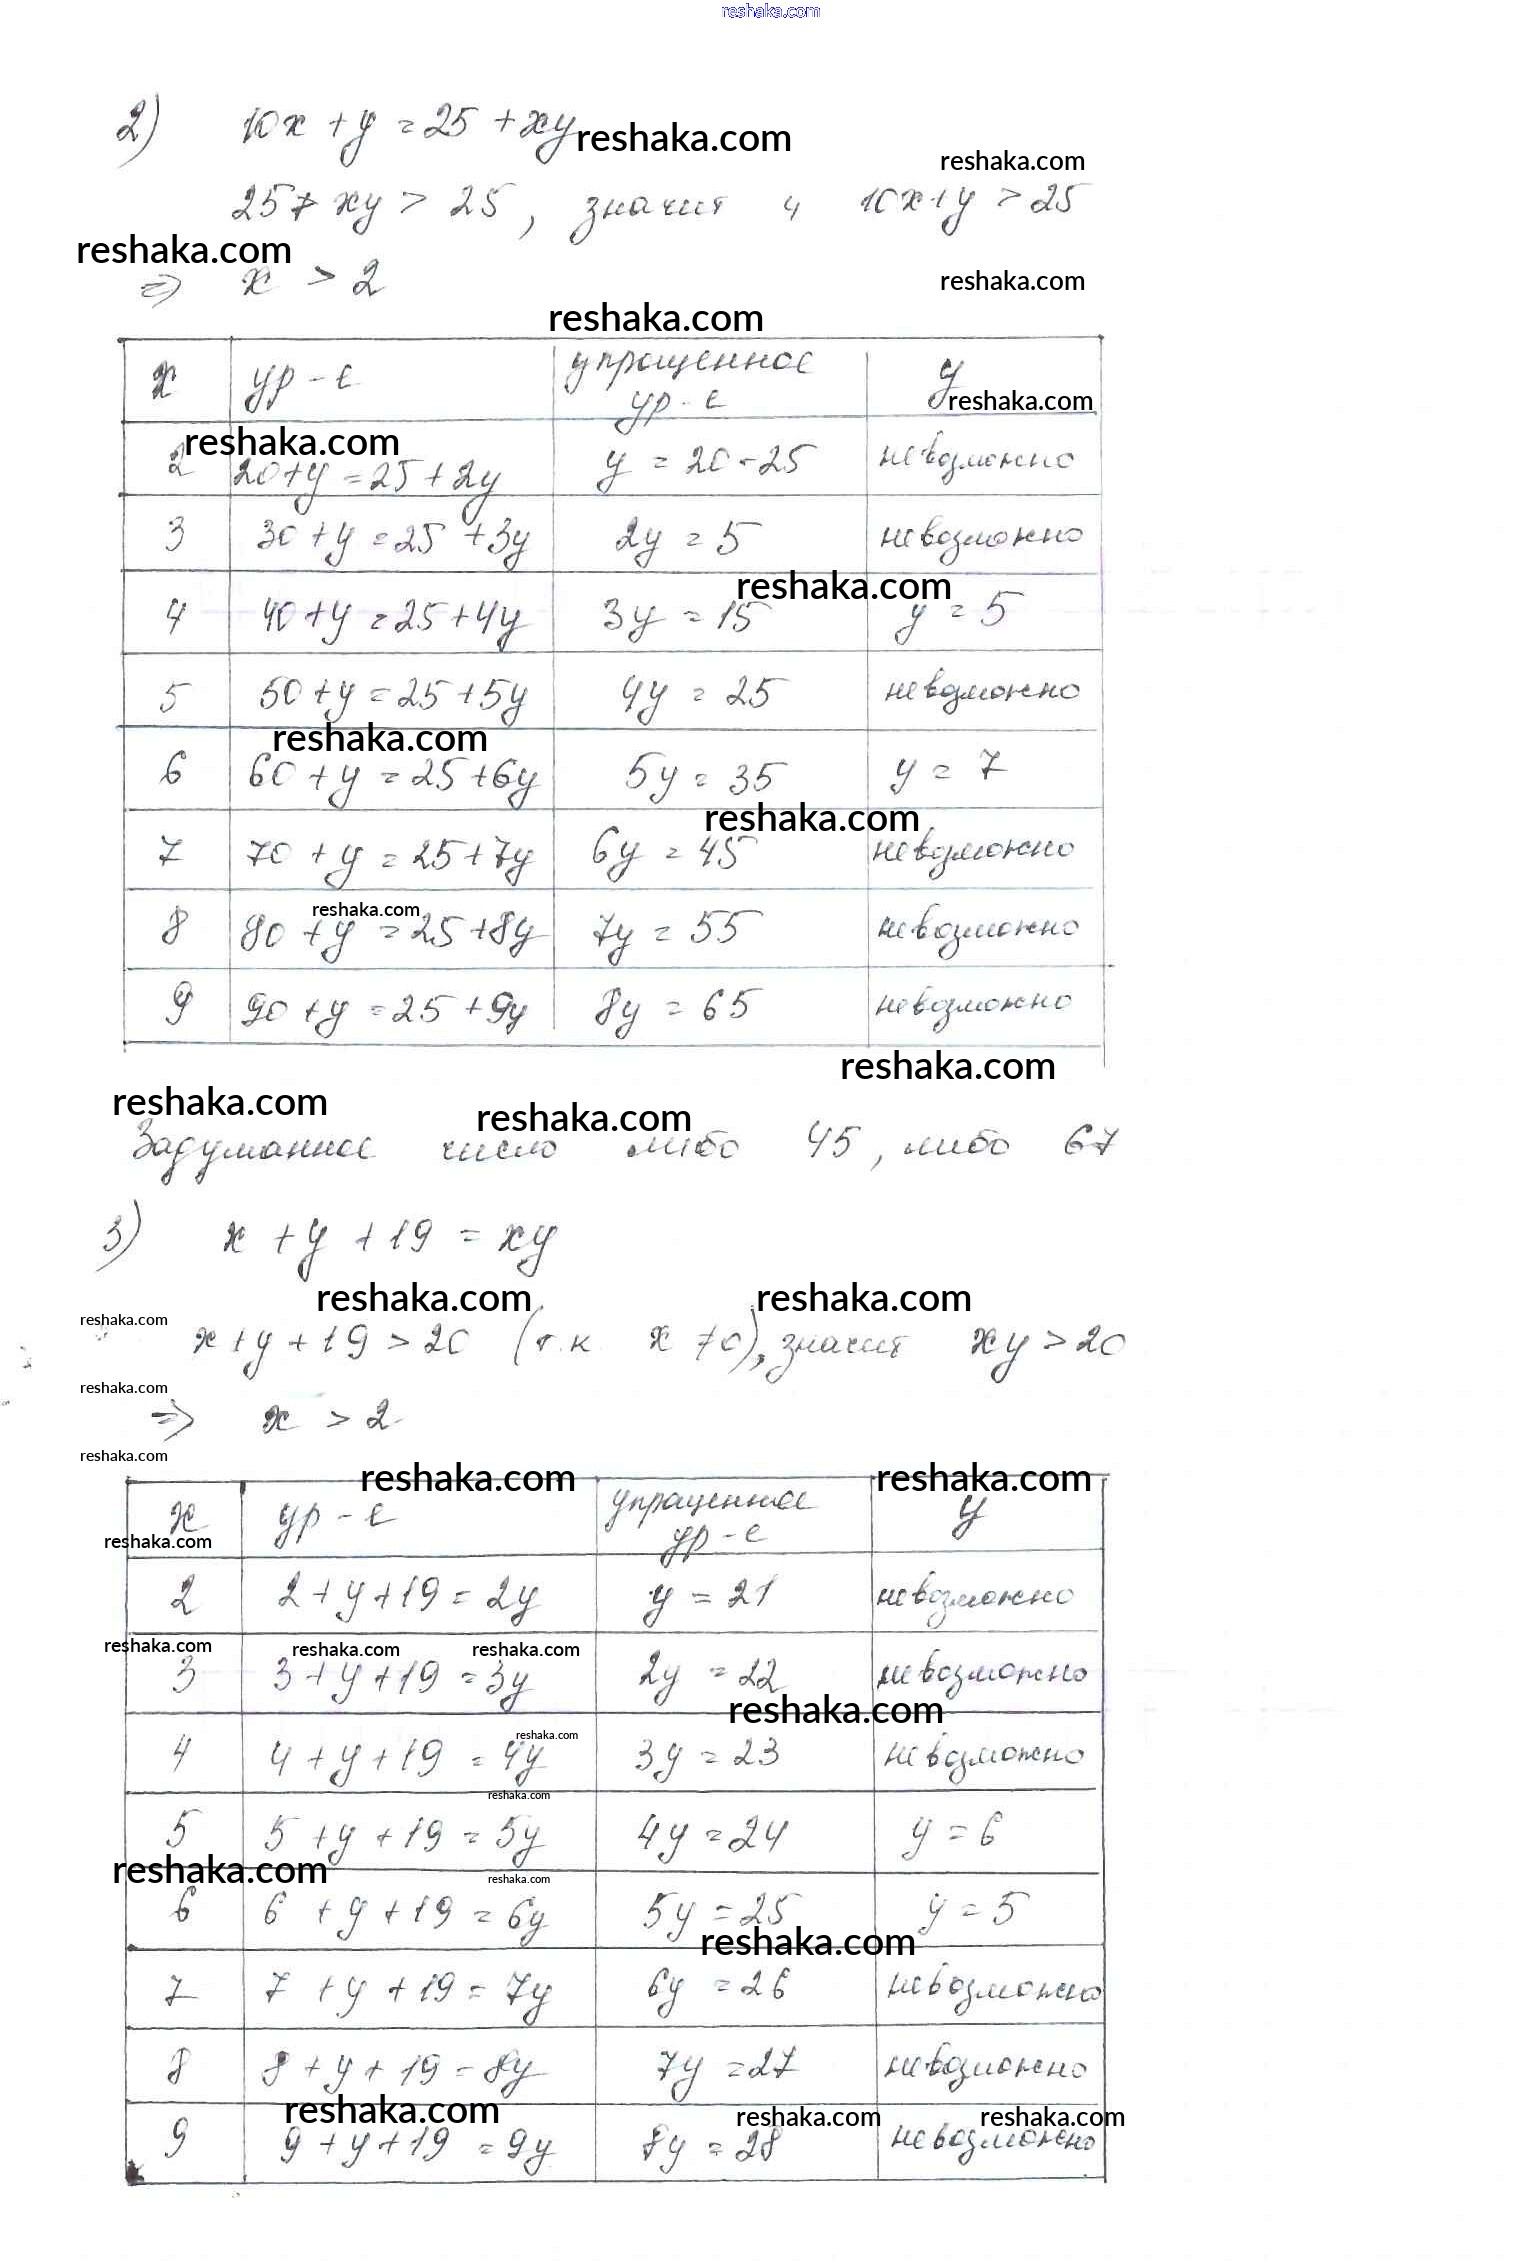 reshaka.com
2) 10x + y = 25 + xy
reshaka.com
reshaka.com
25 + xy > 25, значит и 10x+y > 25
reshaka.com
⇒ x > 2
reshaka.com
reshaka.com
x ур-е упрощенное ур-е y
reshaka.com
reshaka.com
2 20+y = 25+2y y = 20-25 невозможно
3 30+y = 25+3y 2y = 5 невозможно
reshaka.com
4 40+y = 25+4y 3y = 15 y = 5
5 50+y = 25+5y 4y = 25 невозможно
reshaka.com
6 60+y = 25+6y 5y = 35 y = 7
reshaka.com
7 70+y = 25+7y 6y = 45 невозможно
reshaka.com
8 80+y = 25+8y 7y = 55 невозможно
9 90+y = 25+9y 8y = 65 невозможно
reshaka.com
reshaka.com reshaka.com
Задуманное число либо 45, либо 67
3) x + y + 19 = xy
reshaka.com reshaka.com
reshaka.com
x+y+19 > 20 (т.к. x ≠ 0), значит xy > 20
reshaka.com
⇒ x > 2
reshaka.com
reshaka.com reshaka.com
x ур-е упрощенное ур-е y
reshaka.com
2 2+y+19 = 2y y = 21 невозможно
reshaka.com reshaka.com reshaka.com
3 3+y+19 = 3y 2y = 22 невозможно
reshaka.com
reshaka.com
4 4+y+19 = 4y 3y = 23 невозможно
reshaka.com
5 5+y+19 = 5y 4y = 24 y = 6
reshaka.com reshaka.com
6 6+y+19 = 6y 5y = 25 y = 5
reshaka.com
7 7+y+19 = 7y 6y = 26 невозможно
8 8+y+19 = 8y 7y = 27 невозможно
reshaka.com reshaka.com reshaka.com
9 9+y+19 = 9y 8y = 28 невозможно